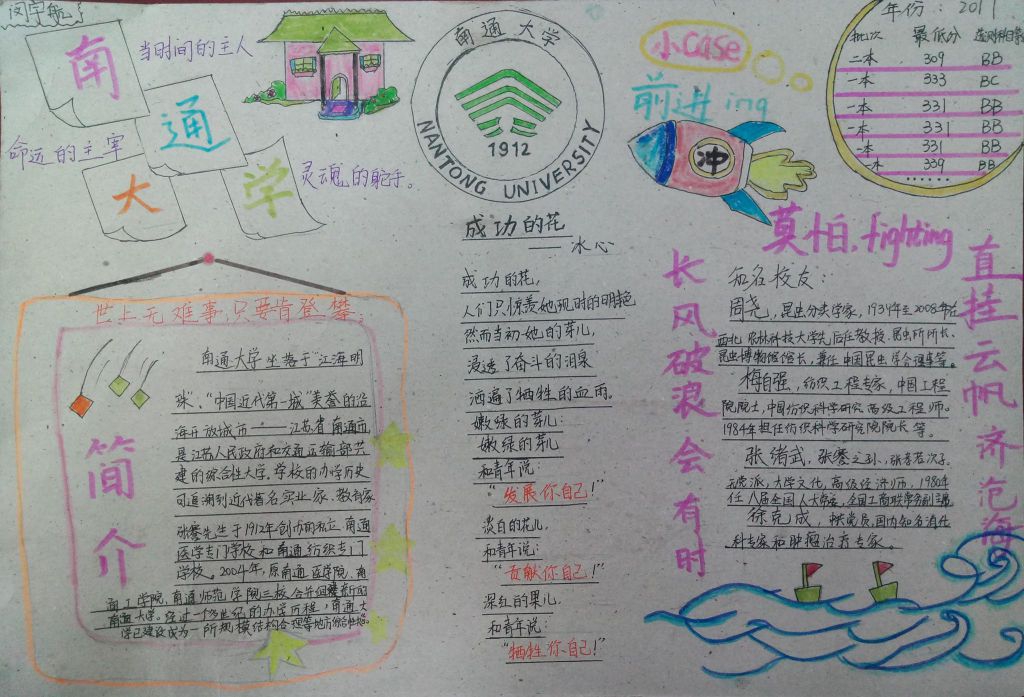 闵宇航
南
通
大
学
当时间的主人
命运的主宰
灵魂的舵手。
南通大学
1912
NANTONG UNIVERSITY
小case
前进ing
冲
莫怕.fighting
年份：2011
批次 最低分
二本 309 BB
一本 333 BC
一本 331 BB
一本 331 BB
一本 331 BB
一本 339 BB
......
世上无难事,只要肯登攀;
简介
南通大学坐落于“江海明
珠”、“中国近代第一城”美誉的沿
海开放城市——江苏省南通市,
是江苏人民政府和交通运输部共
建的综合性大学。学校的办学历史
可追溯到近代著名实业家、教育家
张謇先生于1912年创办的私立南通
医学专门学校和南通纺织专门
学校。2004年,原南通医学院、南
通工学院、南通师范学院三校合并组建新的
南通大学。经过一个世纪的办学历程,南通大
学已建设成为一所规模结构合理等地方综合性大学。
成功的花
——冰心
成功的花,
人们只惊羡她现时的明艳
然而当初她的芽儿,
浸透了奋斗的泪泉
洒遍了牺牲的血雨。
嫩绿的芽儿:
嫩绿的芽儿
和青年说:
“发展你自己!”
淡白的花儿,
和青年说:
“贡献你自己!”
深红的果儿,
和青年说:
“牺牲你自己!”
长风破浪会有时
直挂云帆济沧海
知名校友:
周尧,昆虫分类学家,1934年至2008年在
西北农林科技大学先后任教授、昆虫所所长、
昆虫博物馆馆长,兼任中国昆虫学会理事等。
梅自强,纺织工程专家,中国工程
院院士,中国纺织科学研究高级工程师。
1984年担任纺织科学研究院院长等。
张绪武,张謇之孙、张孝若次子。
无党派,大学文化,高级经济师,1980年
任八届全国人大常委,全国工商联常务副主席
徐克成,
科专家和肿瘤治疗专家。